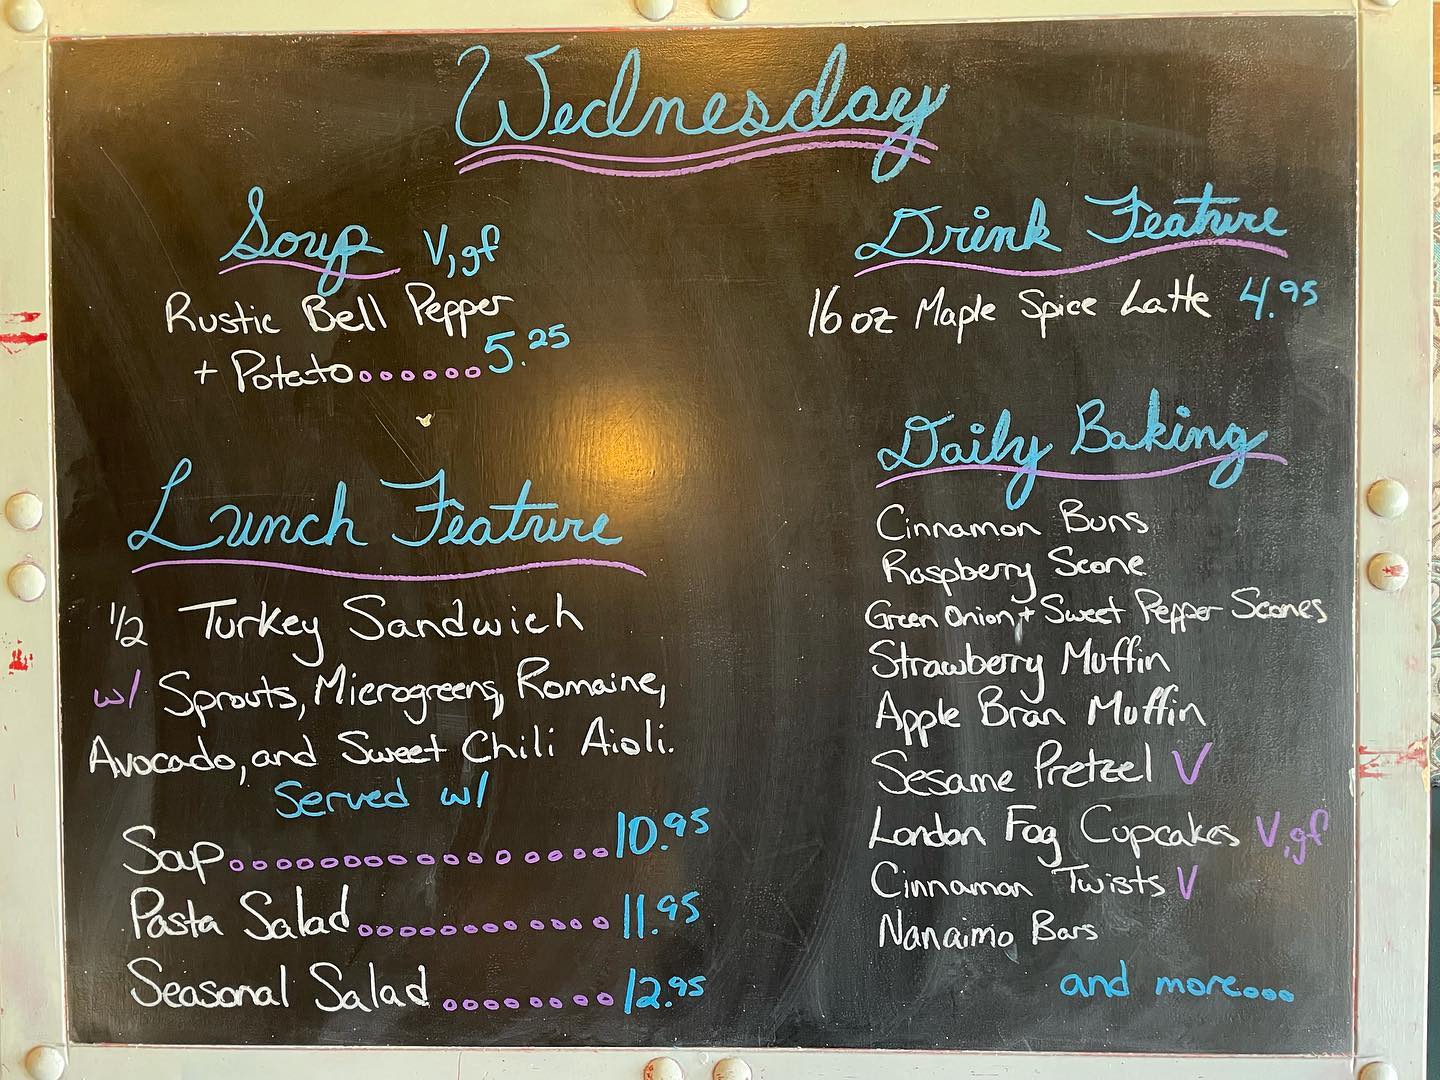 Wednesday
Soup V, gf
Rustic Bell Pepper
+ Potato......5.25
Lunch Feature
1/2 Turkey Sandwich
w/ Sprouts, Microgreens, Romaine,
Avocado, and Sweet Chili Aioli.
Served w/
Soup................10.95
Pasta Salad.............11.95
Seasonal Salad.........12.95
Drink Feature
16 oz Maple Spice Latte 4.95
Daily Baking
Cinnamon Buns
Raspberry Scone
Green Onion + Sweet Pepper Scones
Strawberry Muffin
Apple Bran Muffin
Sesame Pretzel V
London Fog Cupcakes V, gf
Cinnamon Twists V
Nanaimo Bars
and more....